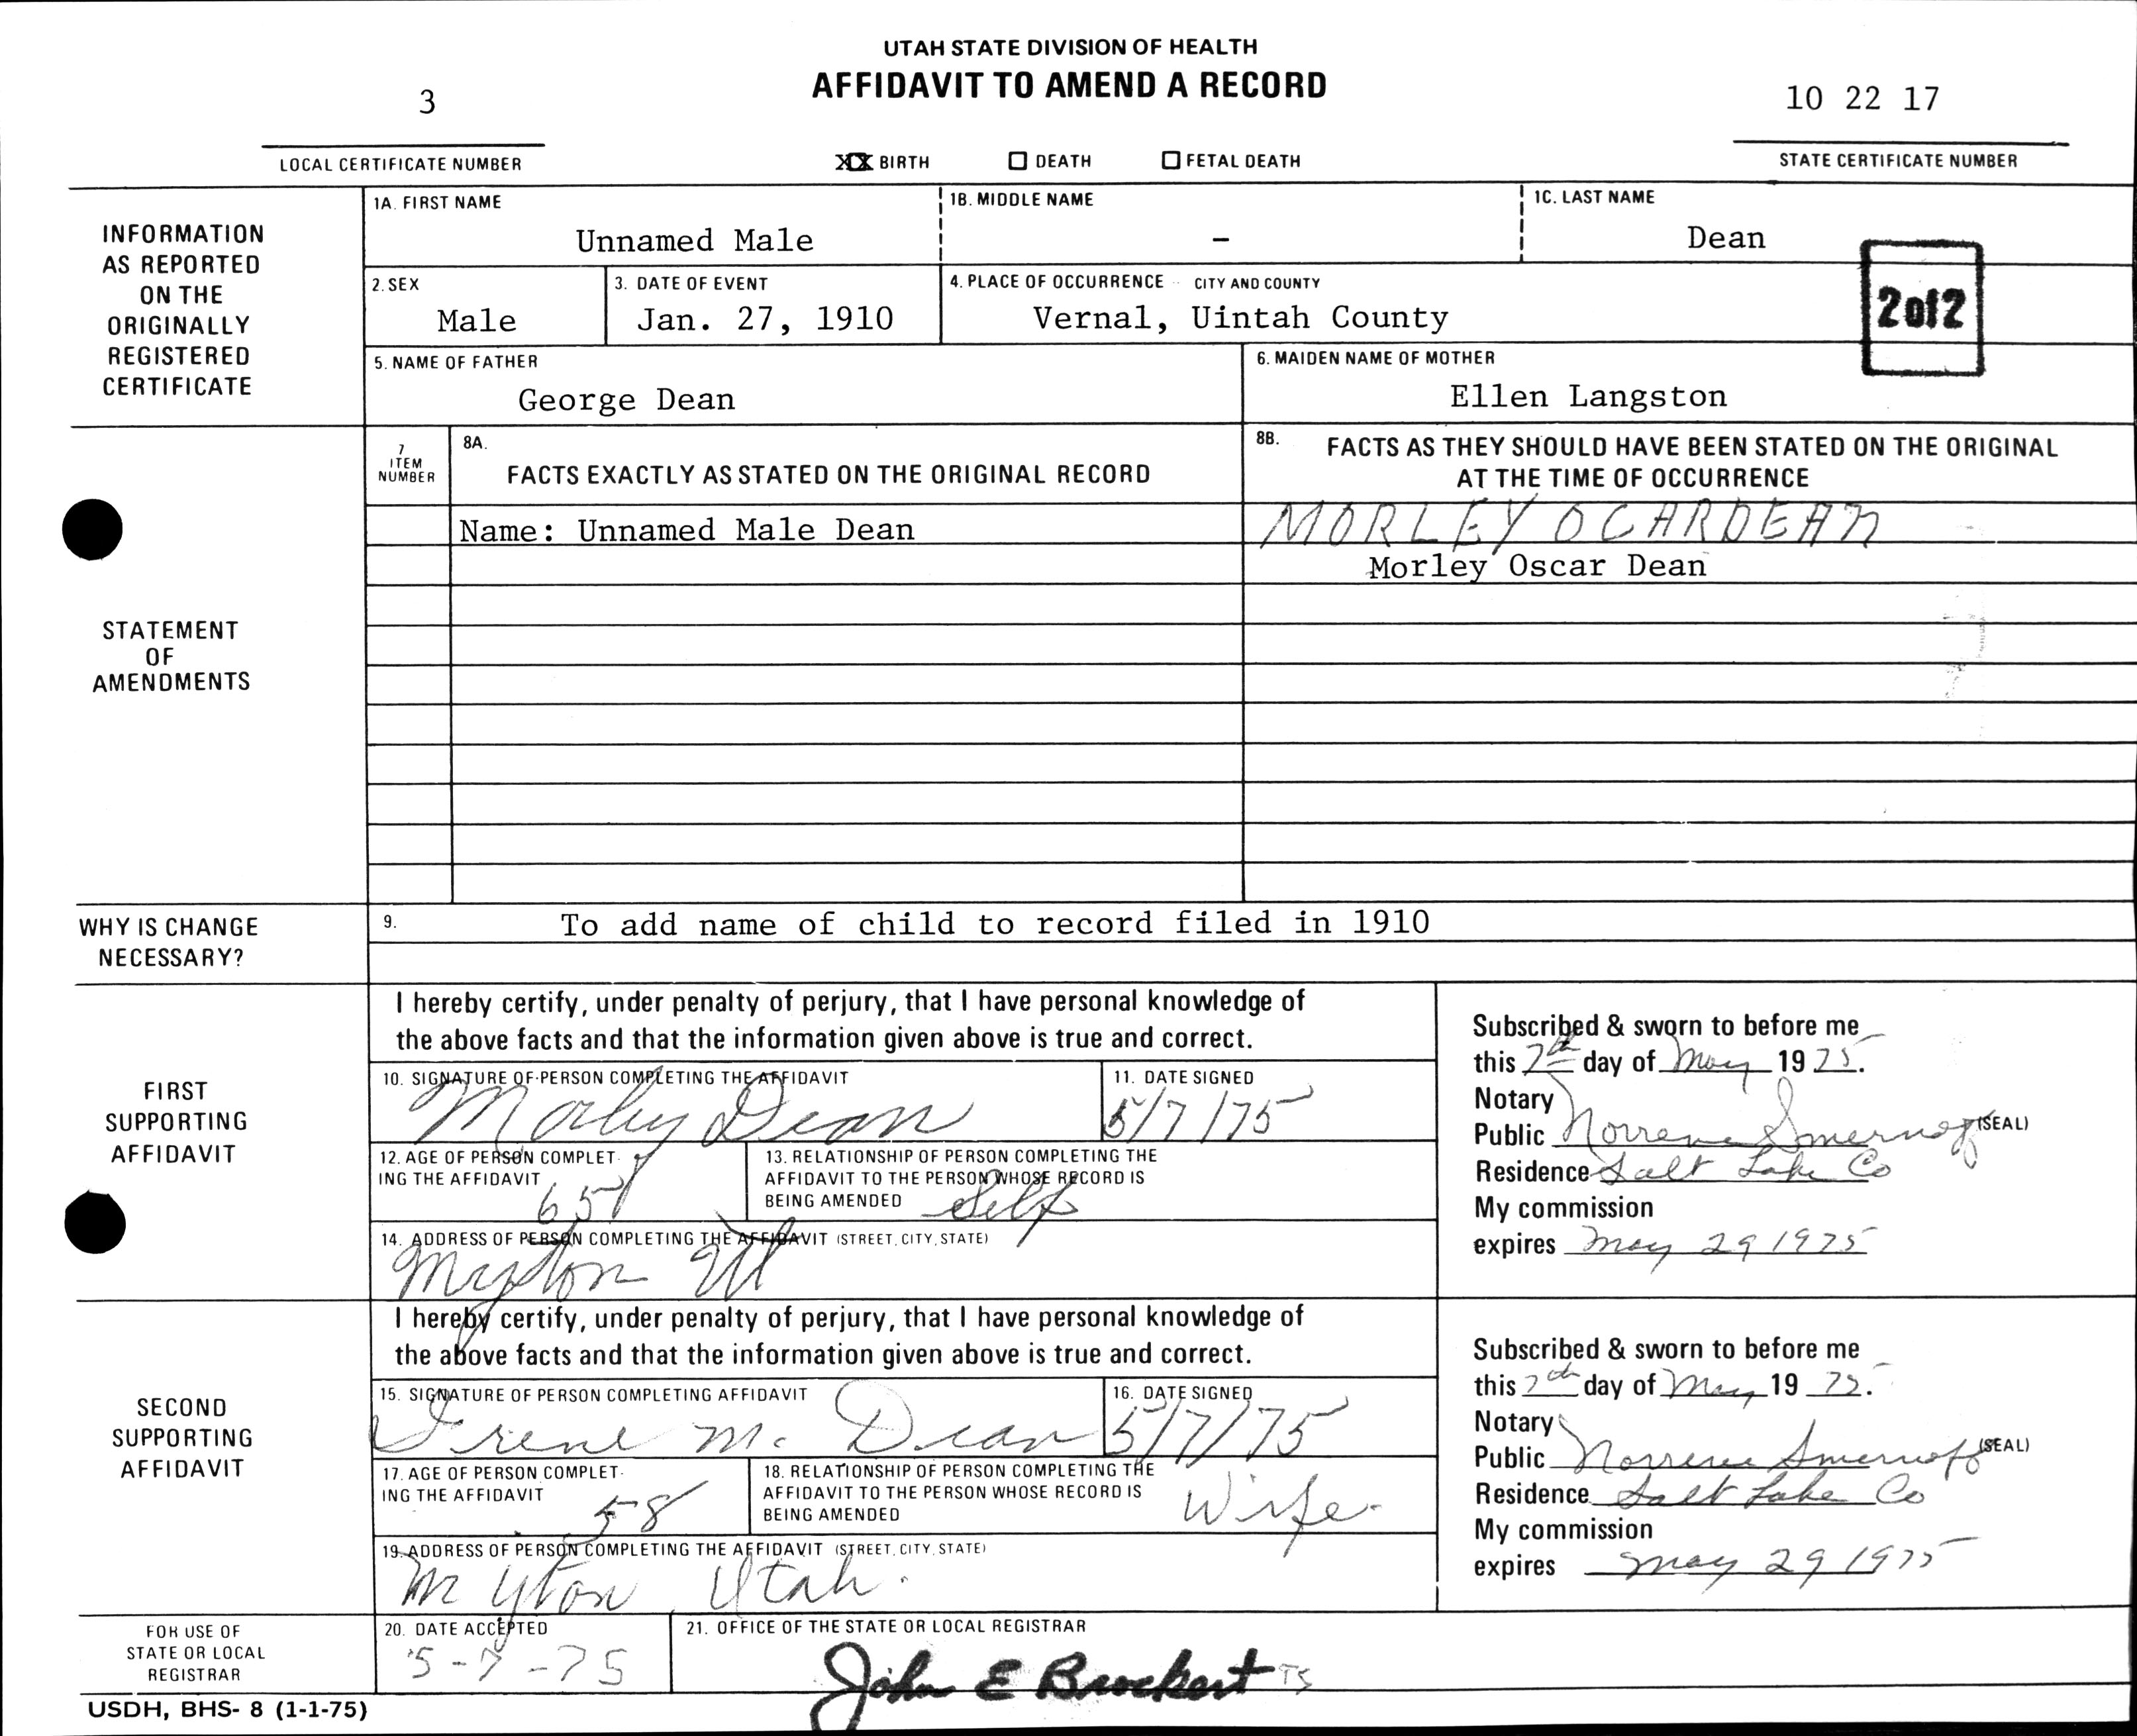 UTAH STATE DIVISION OF HEALTH
AFFIDAVIT TO AMEND A RECORD
3
10 22 17
LOCAL CERTIFICATE NUMBER
XX BIRTH ☐ DEATH ☐ FETAL DEATH
STATE CERTIFICATE NUMBER
INFORMATION
AS REPORTED
ON THE
ORIGINALLY
REGISTERED
CERTIFICATE
1A. FIRST NAME
Unnamed Male
1B. MIDDLE NAME
-
1C. LAST NAME
Dean
2 of 2
2. SEX
Male
3. DATE OF EVENT
Jan. 27, 1910
4. PLACE OF OCCURRENCE - CITY AND COUNTY
Vernal, Uintah County
5. NAME OF FATHER
George Dean
6. MAIDEN NAME OF MOTHER
Ellen Langston
STATEMENT
OF
AMENDMENTS
7
ITEM
NUMBER
8A.
FACTS EXACTLY AS STATED ON THE ORIGINAL RECORD
8B. FACTS AS THEY SHOULD HAVE BEEN STATED ON THE ORIGINAL
AT THE TIME OF OCCURRENCE
Name: Unnamed Male Dean
MORLEY OCARDEAN
Morley Oscar Dean
WHY IS CHANGE
NECESSARY?
9. To add name of child to record filed in 1910
FIRST
SUPPORTING
AFFIDAVIT
I hereby certify, under penalty of perjury, that I have personal knowledge of
the above facts and that the information given above is true and correct.
10. SIGNATURE OF PERSON COMPLETING THE AFFIDAVIT
Morley Dean
11. DATE SIGNED
5/7/75
12. AGE OF PERSON COMPLET-
ING THE AFFIDAVIT
65
13. RELATIONSHIP OF PERSON COMPLETING THE
AFFIDAVIT TO THE PERSON WHOSE RECORD IS
BEING AMENDED Self
14. ADDRESS OF PERSON COMPLETING THE AFFIDAVIT (STREET, CITY, STATE)
Myton Ut
Subscribed & sworn to before me
this 7th day of May 1975.
Notary
Public Norrene Smernoff (SEAL)
Residence Salt Lake Co
My commission
expires May 29 1975
SECOND
SUPPORTING
AFFIDAVIT
I hereby certify, under penalty of perjury, that I have personal knowledge of
the above facts and that the information given above is true and correct.
15. SIGNATURE OF PERSON COMPLETING AFFIDAVIT
Irene M. Dean
16. DATE SIGNED
5/7/75
17. AGE OF PERSON COMPLET-
ING THE AFFIDAVIT
58
18. RELATIONSHIP OF PERSON COMPLETING THE
AFFIDAVIT TO THE PERSON WHOSE RECORD IS
BEING AMENDED
Wife
19. ADDRESS OF PERSON COMPLETING THE AFFIDAVIT (STREET, CITY, STATE)
Myton, Utah.
Subscribed & sworn to before me
this 7th day of May 1975.
Notary
Public Norrene Smernoff (SEAL)
Residence Salt Lake Co
My commission
expires May 29 1975
FOR USE OF
STATE OR LOCAL
REGISTRAR
20. DATE ACCEPTED
5-7-75
21. OFFICE OF THE STATE OR LOCAL REGISTRAR
John E Brockert TS
USDH, BHS- 8 (1-1-75)